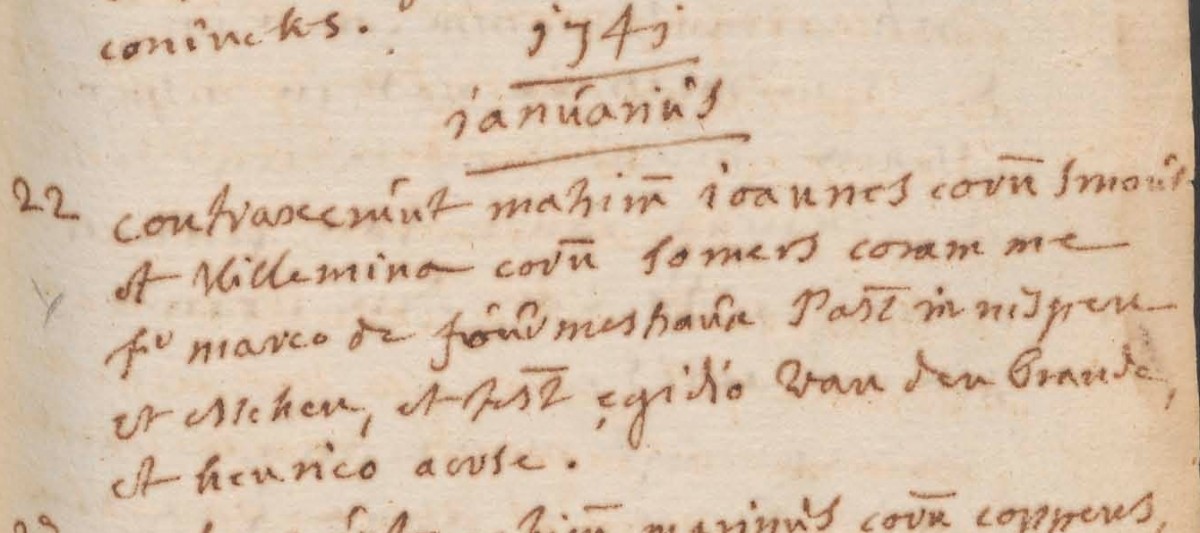 conincks.
1741
ianuarius
22 contraxerunt matrim̄ ioannes corn̄ smout
et Willemina corn̄ somers coram me
fr marco de fourmeshaux Past̄ in nispen
et Esschen, et test̄ egidio van den brande,
et henrico aerse.
matrim̄ marinus corn̄ coppens,